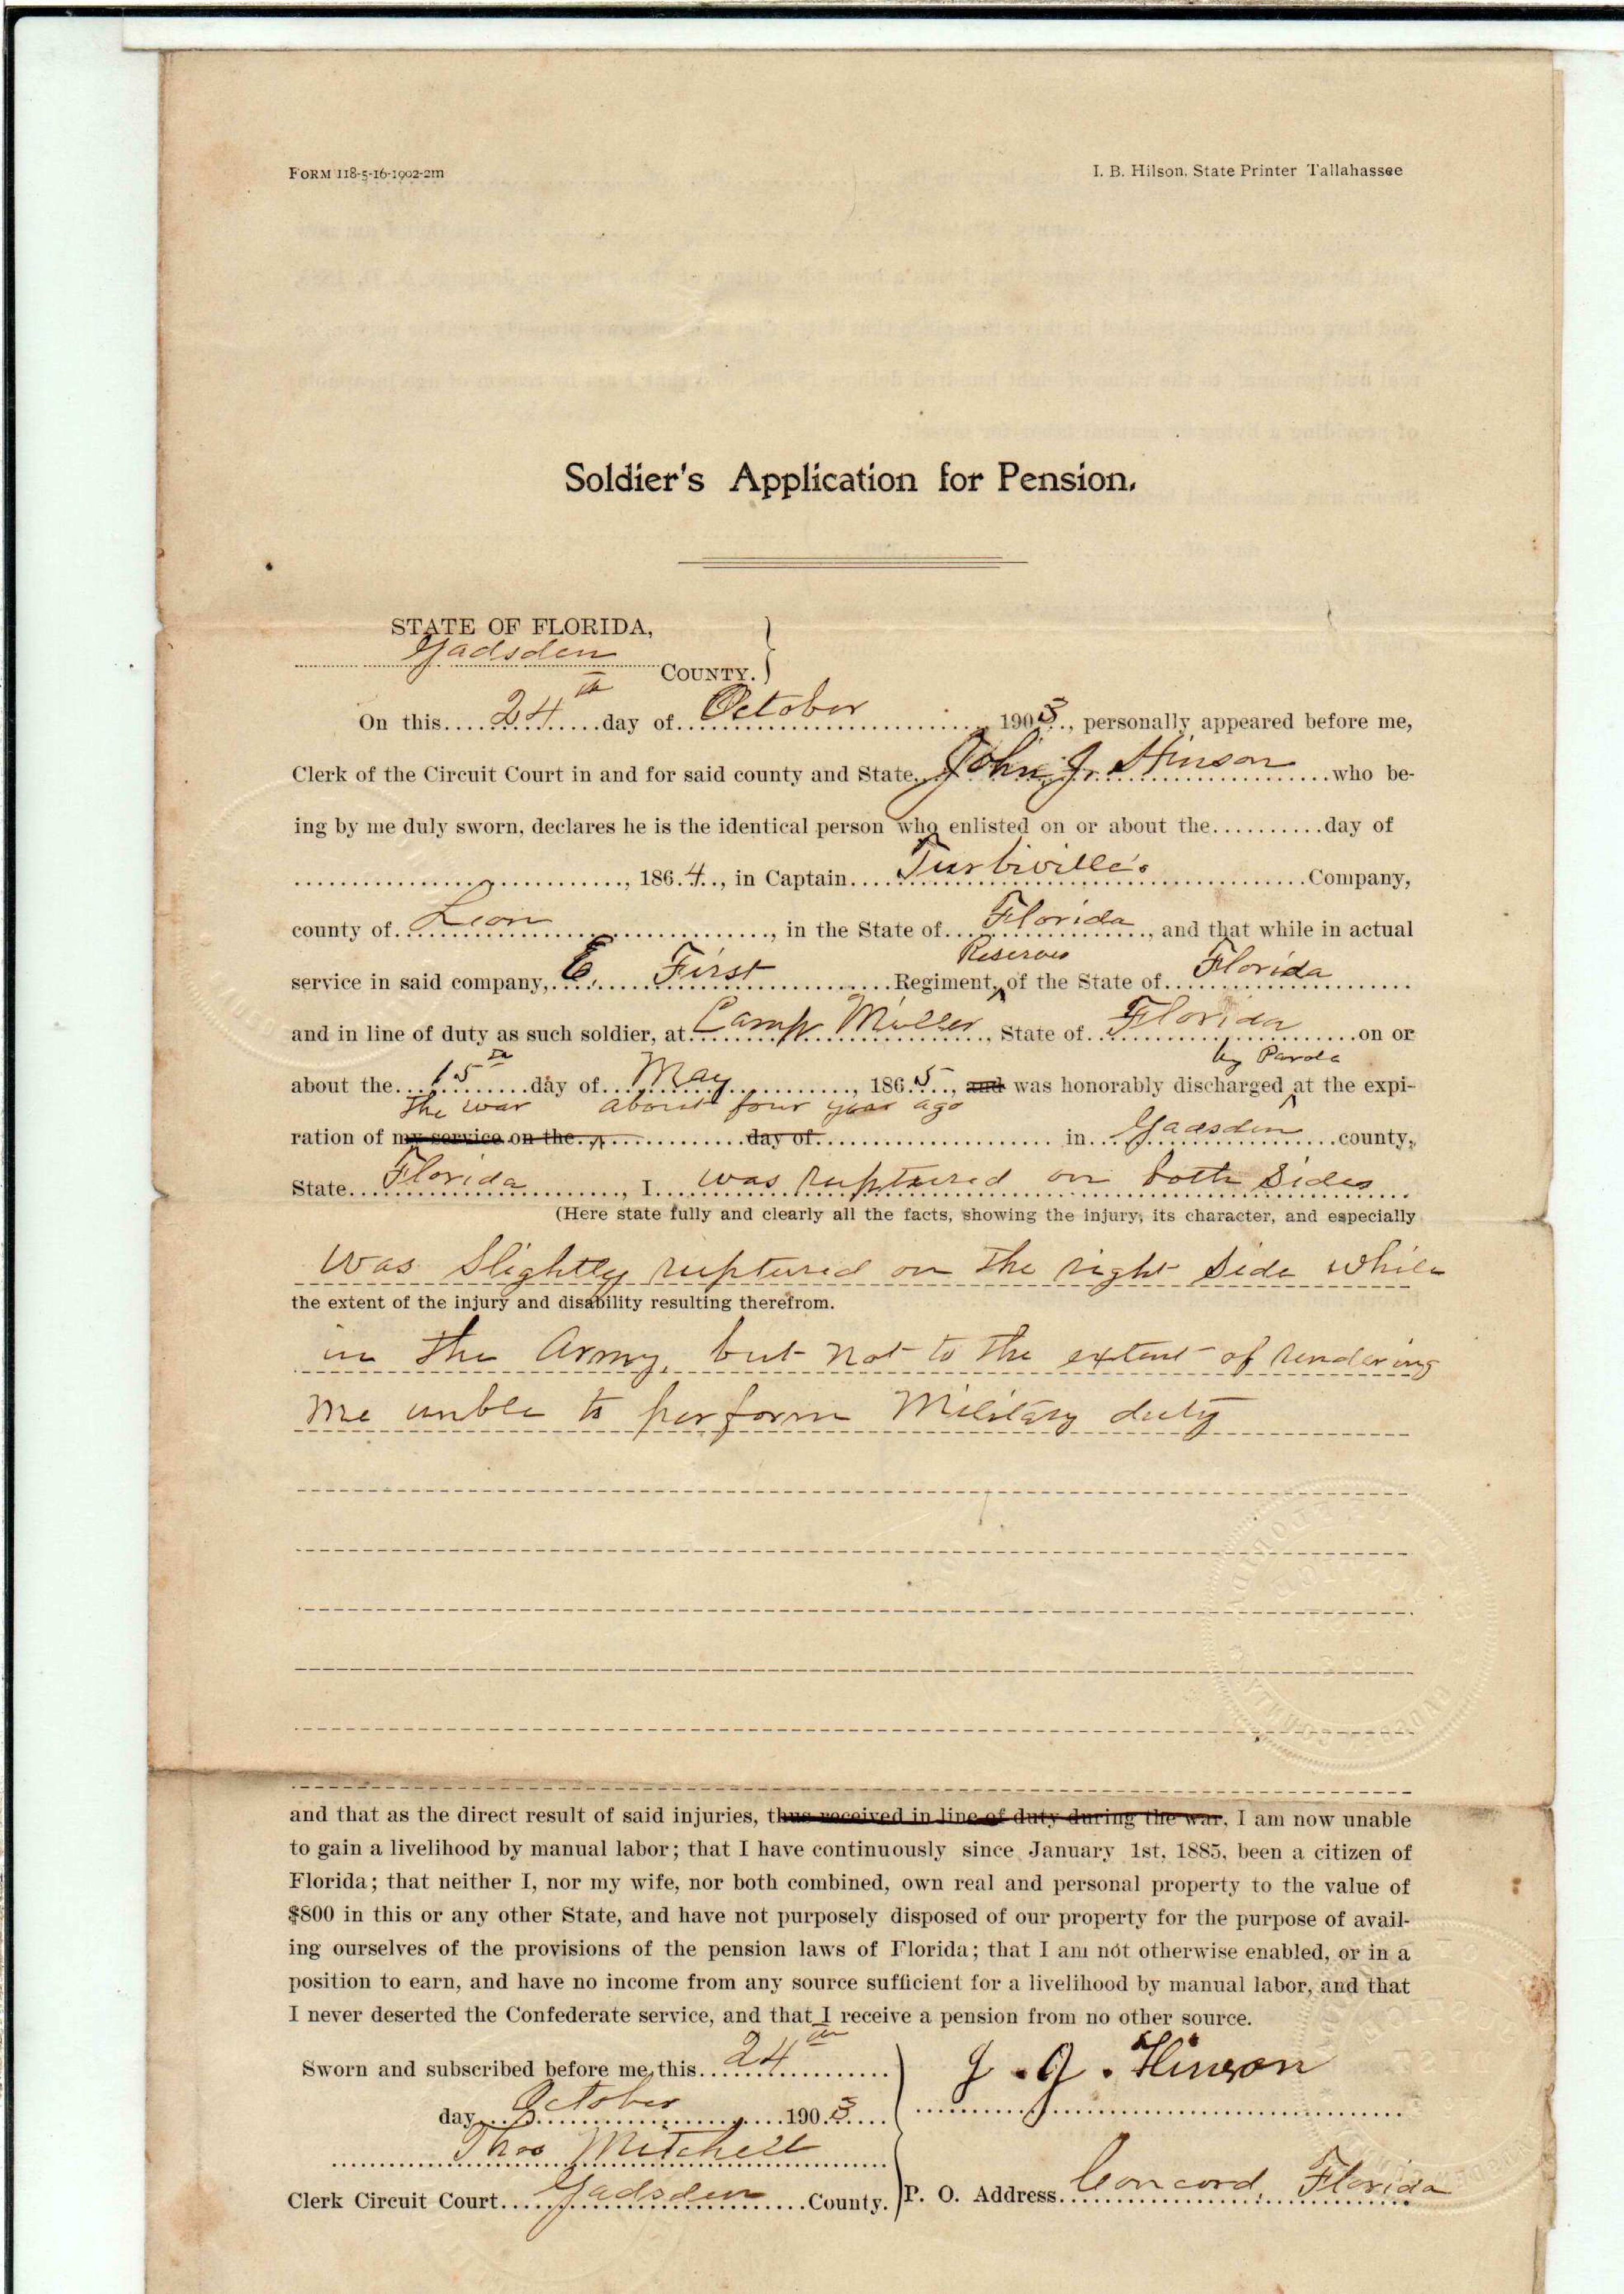 FORM 118-5-16-1902-2m
I. B. Hilson, State Printer Tallahassee
Soldier's Application for Pension.
STATE OF FLORIDA,
Gadsden COUNTY.
On this 24th day of October 1903, personally appeared before me,
Clerk of the Circuit Court in and for said county and State, John J. Hinson who be-
ing by me duly sworn, declares he is the identical person who enlisted on or about the day of
, 1864, in Captain Turbiville's Company,
county of Leon, in the State of Florida, and that while in actual
Reserves
service in said company, E, First Regiment, of the State of Florida
and in line of duty as such soldier, at Camp Miller, State of Florida on or
by Parole
about the 15th day of May, 1865, and was honorably discharged at the expi-
The war about four year ago
ration of my service on the day of in Gadsden county,
State Florida, I was ruptured on both sides
(Here state fully and clearly all the facts, showing the injury, its character, and especially
was slightly ruptured on the right side while
the extent of the injury and disability resulting therefrom.
in the Army, but not to the extent of rendering
me unble to perform Military duty
and that as the direct result of said injuries, thus received in line of duty during the war, I am now unable
to gain a livelihood by manual labor; that I have continuously since January 1st, 1885, been a citizen of
Florida; that neither I, nor my wife, nor both combined, own real and personal property to the value of
$800 in this or any other State, and have not purposely disposed of our property for the purpose of avail-
ing ourselves of the provisions of the pension laws of Florida; that I am not otherwise enabled, or in a
position to earn, and have no income from any source sufficient for a livelihood by manual labor, and that
I never deserted the Confederate service, and that I receive a pension from no other source.
Sworn and subscribed before me, this 24th
J. J. Hinson
day October 1903
Thos Mitchell
Clerk Circuit Court Gadsden County.
P. O. Address Concord, Florida